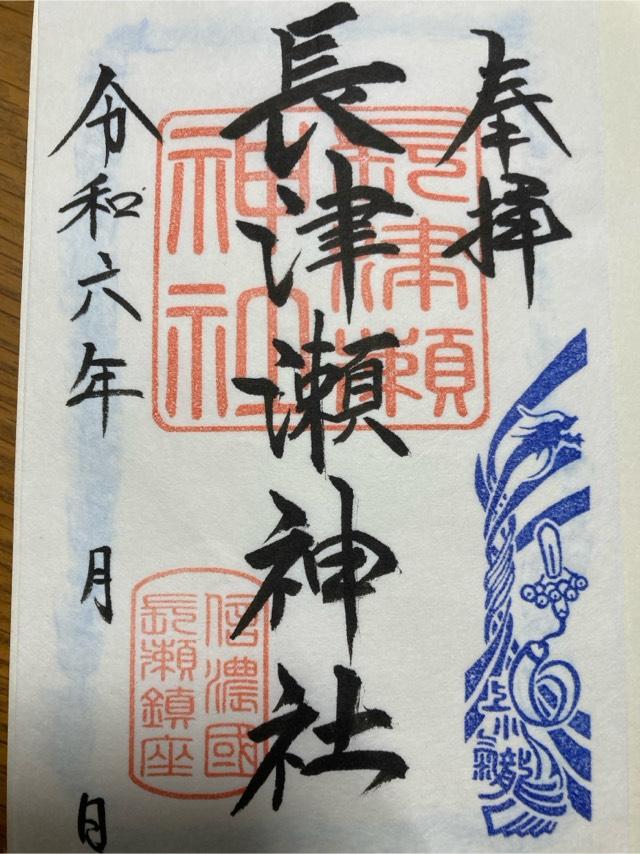 奉拝
長津瀬神社
長津瀬
神社
令和六年 月 日
信濃國
長瀬鎮座